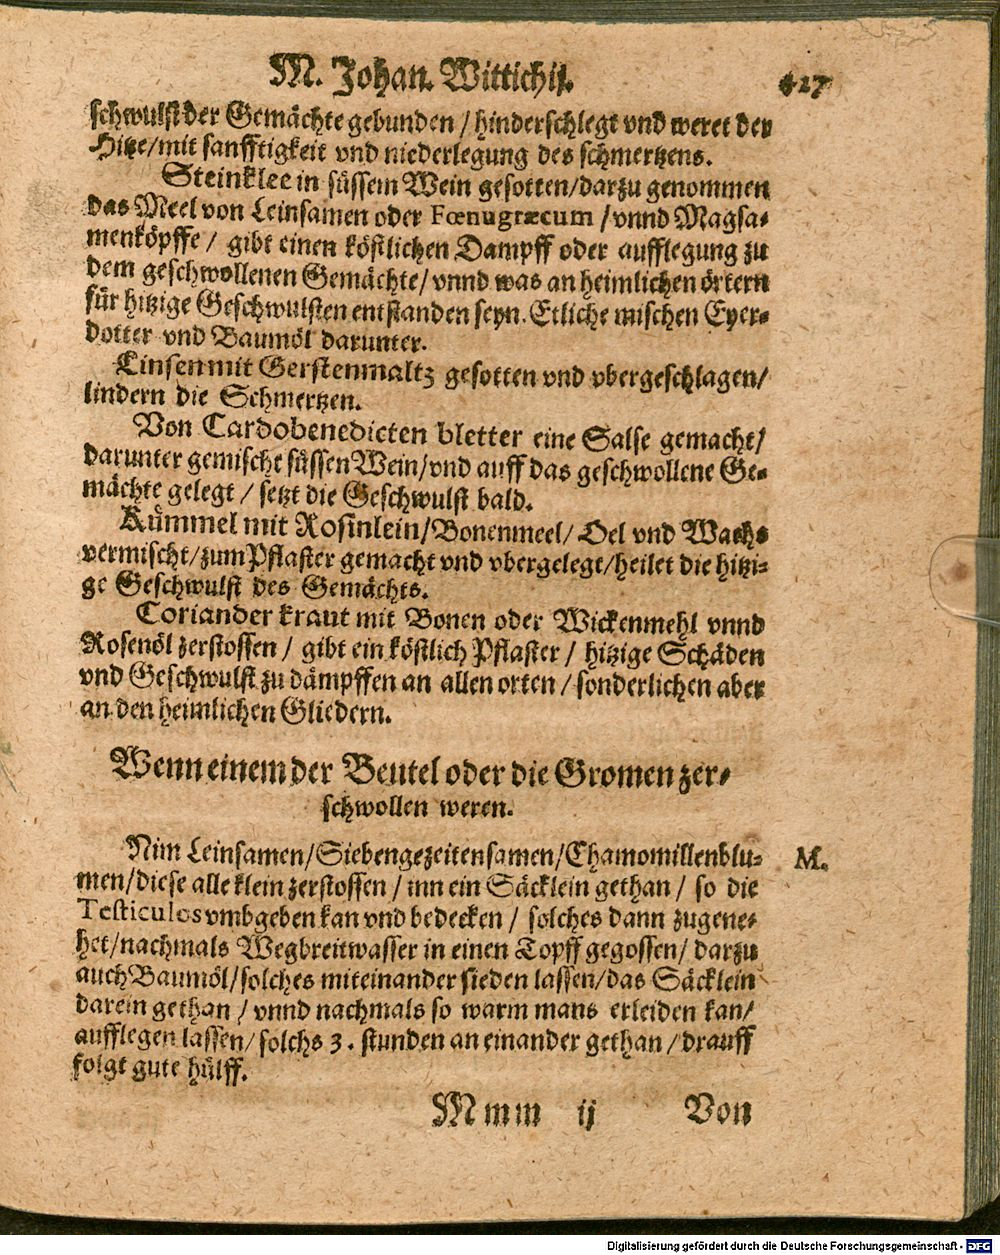 M. Johan. Wittichij. 427
schwulst der Gemächte gebunden / hinderschlegt vnd weret der
Hitze/mit sanfftigkeit vnd niederlegung des schmertzens.
Steinklee in süssem Wein gesotten/darzu genommen
das Meel von Leinsamen oder Fœnugræcum / vnnd Magsa-
menköpffe / gibt einen köstlichen Dampff oder aufflegung zu
dem geschwollenen Gemächte/ vnnd was an heimlichen örtern
für hitzige Geschwulsten entstanden seyn. Etliche mischen Eyer-
dotter vnd Baumöl darunter.
Linsen mit Gerstenmaltz gesotten vnd vbergeschlagen/
lindern die Schmertzen.
Von Cardobenedicten bletter eine Salse gemacht/
darunter gemischt süssen Wein/vnd auff das geschwollene Ge-
mächte gelegt / setzt die Geschwulst bald.
Kümmel mit Rosinlein/Bonenmeel/ Oel vnd Wachs
vermischt/zum Pflaster gemacht vnd vbergelegt/heilet die hitzi-
ge Geschwulst des Gemächts.
Coriander kraut mit Bonen oder Wickenmehl vnnd
Rosenöl zerstossen / gibt ein köstlich Pflaster / hitzige Schäden
vnd Geschwulst zu dämpffen an allen orten / sonderlichen aber
an den heimlichen Gliedern.
Wenn einem der Beutel oder die Gromen zer-
schwollen weren.
Nim Leinsamen/Siebengezeitensamen/Chamomillenblu- M.
men/diese alle klein zerstossen / inn ein Säcklein gethan / so die
Testiculos vmbgeben kan vnd bedecken / solches dann zugene-
het/nachmals Wegbreitwasser in einen Topff gegossen/ darzu
auch Baumöl/solches miteinander sieden lassen/das Säcklein
darein gethan / vnnd nachmals so warm mans erleiden kan/
aufflegen lassen/ solchs 3. stunden an einander gethan / drauff
folgt gute hülff.
Mmm ij Von
Digitalisierung gefördert durch die Deutsche Forschungsgemeinschaft - DFG